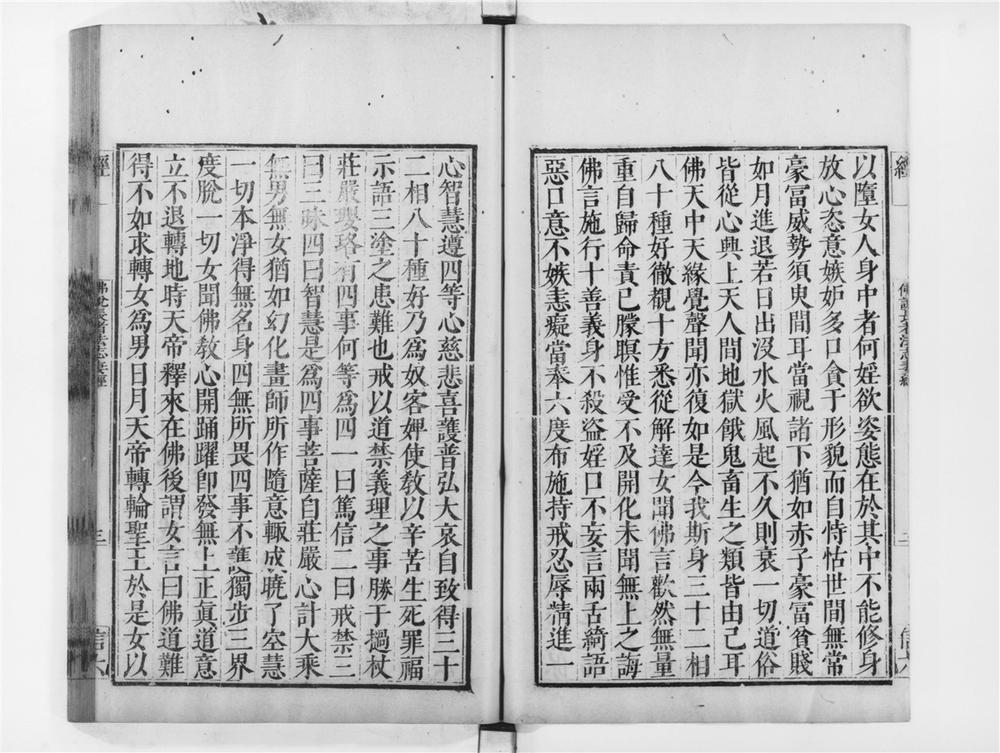 以墮女人身中者何婬欲姿態在於其中不能修身
放心恣意嫉妒多口貪于形貌而自恃怙世間無常
豪富威勢須臾間耳當視諸下猶如赤子豪富貧賤
如月進退若日出沒水火風起不久則衰一切道俗
皆從心興上天人間地獄餓鬼畜生之類皆由己耳
佛天中天緣覺聲聞亦復如是今我斯身三十二相
八十種好徹覩十方悉從解達女聞佛言歡然無量
重自歸命責己朦瞑惟受不及開化未聞無上之誨
佛言施行十善義身不殺盜婬口不妄言兩舌綺語
惡口意不嫉恚癡當奉六度布施持戒忍辱精進一
心智慧遵四等心慈悲喜護普弘大哀自致得三十
二相八十種好乃為奴客婢使教以辛苦生死罪福
示語三塗之患難也戒以道禁義理之事勝于撾杖
莊嚴瓔珞有四事何等為四一曰篤信二曰戒禁三
曰三昧四曰智慧是為四事菩薩自莊嚴心計大乘
無男無女猶如幻化畫師所作隨意輒成曉了空慧
一切本淨得無名身四無所畏四事不護獨步三界
度脫一切女聞佛教心開踊躍卽發無上正眞道意
立不退轉地時天帝釋來在佛後謂女言曰佛道難
得不如求轉女為男日月天帝轉輪聖王於是女以
經
佛說長者法志妻經
三
信六